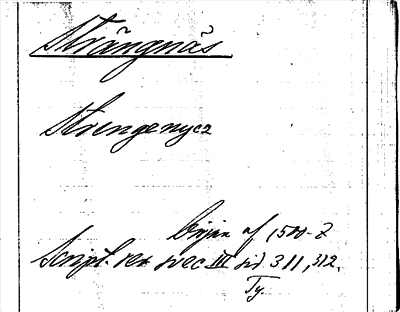 Strängnäs
Strengenycz
Början af 1500-t
Script. rer. svec III sid 311, 312.
Ty.